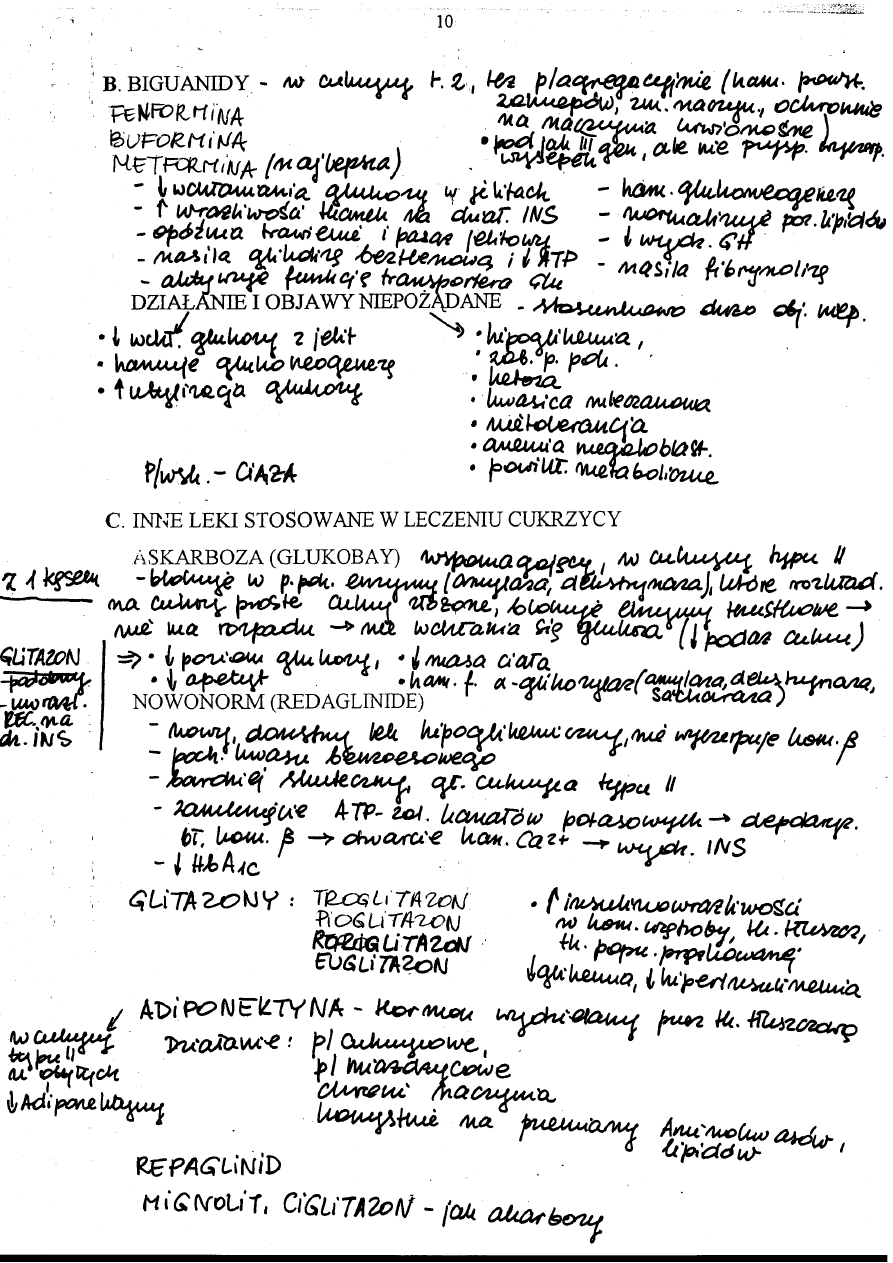 10
B. BIGUANIDY - w cukrzycy t. 2, też p/agregacyjnie (ham. powst.
zakrzepów, zm. naczyn., ochronnie
na naczynia krwionośne)
FENFORMINA
BUFORMINA
METFORMINA (najlepsza)
• pod jak III gen, ale nie przysp. wyczerp.
wysepek
- ↓ wchłaniania glukozy w jelitach
- ↑ wrażliwości tkanek na dział. INS
- opóźnia trawienie i pasaż jelitowy
- nasila glikolizę beztlenową i ↓ ATP
- aktywuje funkcję transportera Glu
- ham. glukoneogenezę
- normalizuje poz. lipidów
- ↓ wydz. GH
- nasila fibrynolizę
DZIAŁANIE I OBJAWY NIEPOŻĄDANE - stosunkowo dużo obj. niep.
• ↓ wchł. glukozy z jelit
• hamuje glukoneogenezę
• ↑ utylizacja glukozy
• hipoglikemia,
• zab. p. pok.
• ketoza
• kwasica mleczanowa
• nietolerancja
• anemia megaloblast.
• powikł. metaboliczne
P/wsk. - CIĄŻA
C. INNE LEKI STOSOWANE W LECZENIU CUKRZYCY
ASKARBOZA (GLUKOBAY) wspomagający, w cukrzycy typu II
z 1 kęsem
- blokuje w p. pok. enzymy (amylaza, dekstrynaza), które rozkład.
na cukry proste cukry złożone, blokuje enzymy trzustkowe →
nie ma rozpadu → nie wchłania się glukoza (↓ podaż cukru)
⇒ • ↓ poziom glukozy, • ↓ masa ciała
• ↓ apetyt • ham. f. α-glikozydaz (amylaza, dekstrynaza,
sacharaza)
GLITAZON
- uwrażl.
REC. na
dz. INS
NOWONORM (REDAGLINIDE)
- nowy, doustny lek hipoglikemiczny, nie wyczerpuje kom. β
- poch. kwasu benzoesowego
- bardziej skuteczny, gł. cukrzyca typu II
- zamknięcie ATP-zal. kanałów potasowych → depolaryz.
bł. kom. β → otwarcie kan. Ca2+ → wydz. INS
- ↓ HbA1c
GLITAZONY: TROGLITAZON
PIOGLITAZON
ROZIGLITAZON
EUGLITAZON
• ↑ insulinowrażliwości
w kom. wątroby, tk. tłuszcz,
tk. poprz. prążkowanej
↓ glikemia, ↓ hiperinsulinemia
ADIPONEKTYNA - Hormon wydzielany przez tk. tłuszczową
w cukrzycy
typu II
u otyłych
↓ Adiponektyny
Działanie: p/cukrzycowe,
p/miażdżycowe
chroni naczynia
korzystnie na przemiany Aminokwasów,
lipidów
REPAGLINID
MIGNOLIT, CIGLITAZON - jak akarbozy